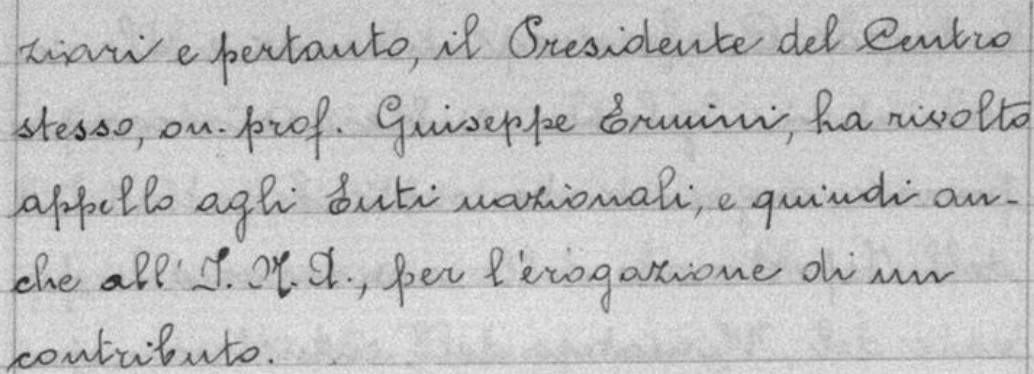 ziari e pertanto, il Presidente del Centro
stesso, on. prof. Giuseppe Ermini, ha rivolto
appello agli Enti nazionali, e quindi an-
che all'I.N.A., per l'erogazione di un
contributo.